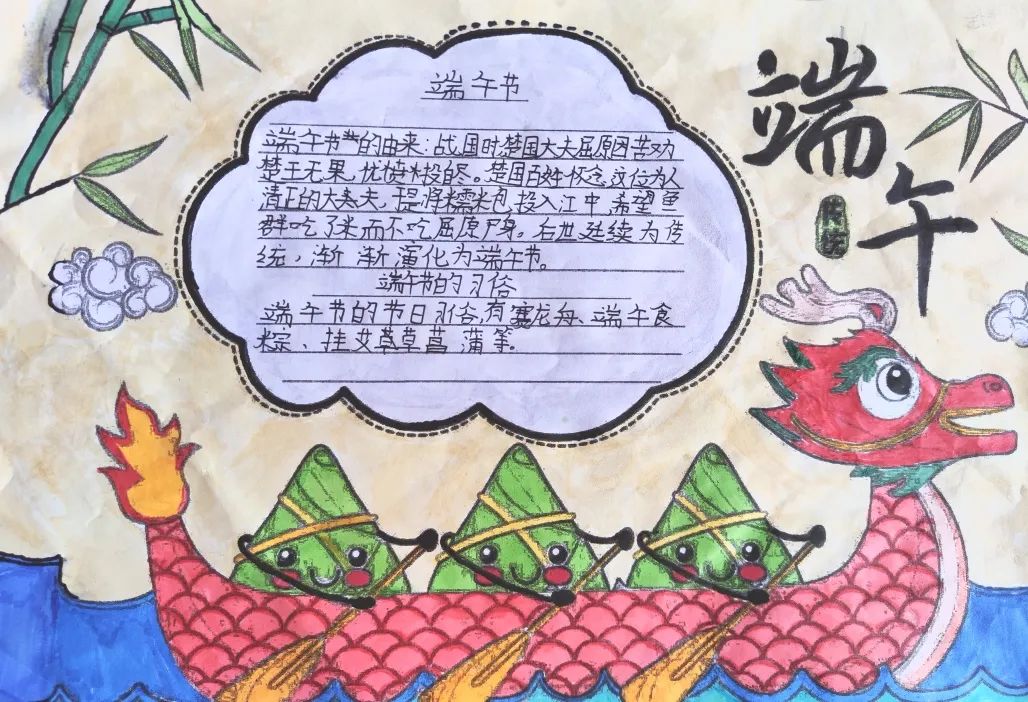 端午节
端午节的由来:战国时楚国大夫屈原因苦劝
楚王无果,忧愤投。楚国百姓怀念这位为人
清正的大夫,提将糯米包投入江中希望鱼
群吃了米而不吃屈原尸身。后世延续为传
统,渐渐演化为端午节。
端午节的习俗
端午节的节日习俗有赛龙舟、端午食
粽、挂艾草草菖蒲等。
端
午